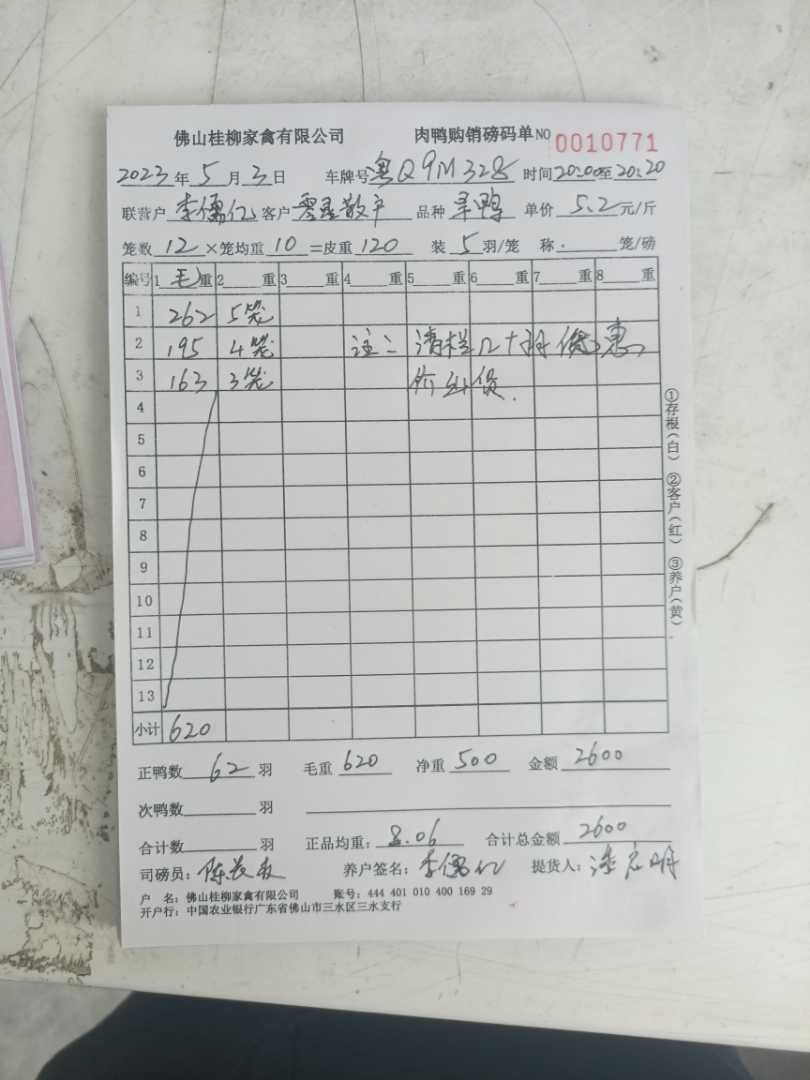 佛山桂柳家禽有限公司 肉鸭购销磅码单 NO 0010771
2023年5月3日 车牌号粤Q9M328 时间20:00至20:20
联营户李儒亿客户零星散户 品种 鸭 单价5.2元/斤
笼数12×笼均重10=皮重120 装5羽/笼 称. 笼/磅
编号 1毛重 2 重 3 重 4 重 5 重 6 重 7 重 8 重
1 262 5笼
2 195 4笼 注: 清栏 优惠
3 163 3笼 价
4
5
6
7
8
9
10
11
12
13
小计 620
正鸭数62羽 毛重620 净重500 金额2600
次鸭数 羽
合计数 羽 正品均重:8.06 合计总金额2600
司磅员:陈 养户签名:李儒亿 提货人: 明
户 名:佛山桂柳家禽有限公司 账号:444 401 010 400 169 29
开户行:中国农业银行广东省佛山市三水区三水支行
①存根(白) ②客户(红) ③养户(黄)